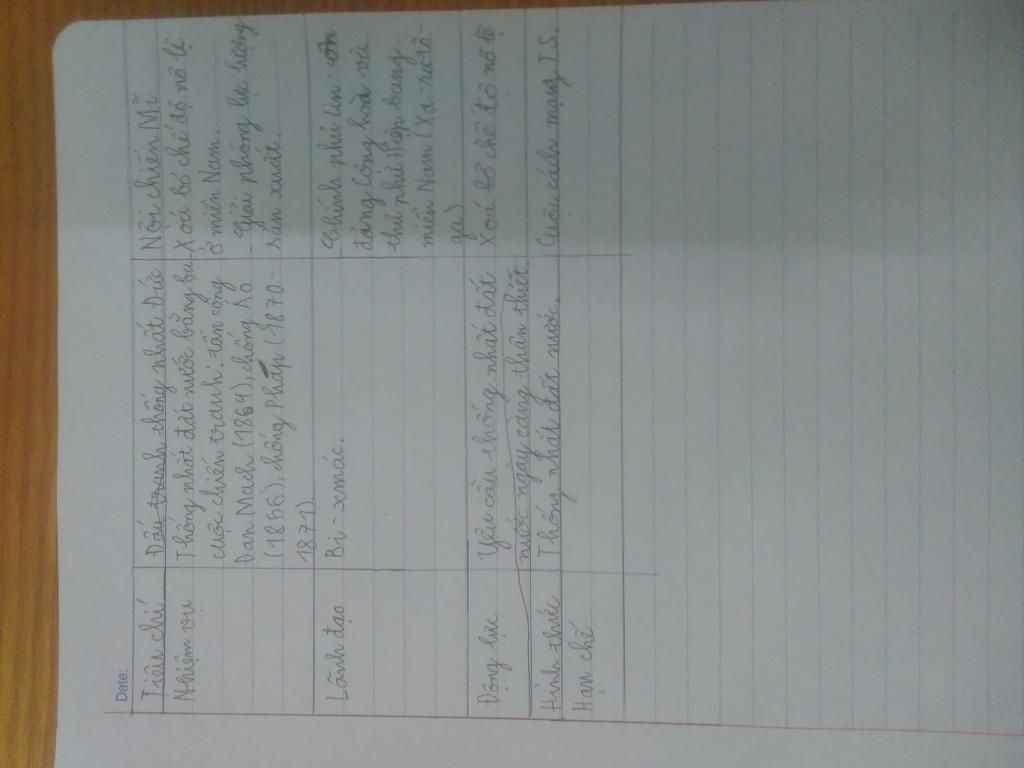 Date:
Tiêu chí
Đấu tranh thống nhất Đức
Nội chiến Mĩ
Nhiệm vụ
Thống nhất đất nước bằng ba
cuộc chiến tranh: tấn công
Đan Mạch (1864), chống Áo
(1866), chống Pháp (1870-
1871).
- Xoá bỏ chế độ nô lệ
ở miền Nam.
- Giải phóng lực lượng
sản xuất.
Lãnh đạo
Bi-xmác.
Chính phủ Lin-côn
đảng Cộng hoà và
thủ phủ Hiệp bang
miền Nam (Xa-ra-tô-
ga)
Động lực
Yêu cầu thống nhất đất
nước ngày càng thân thiết.
Xoá bỏ chế độ nô lệ
Hình thức
Thống nhất đất nước.
Cuộc cách mạng T.S.
Hạn chế